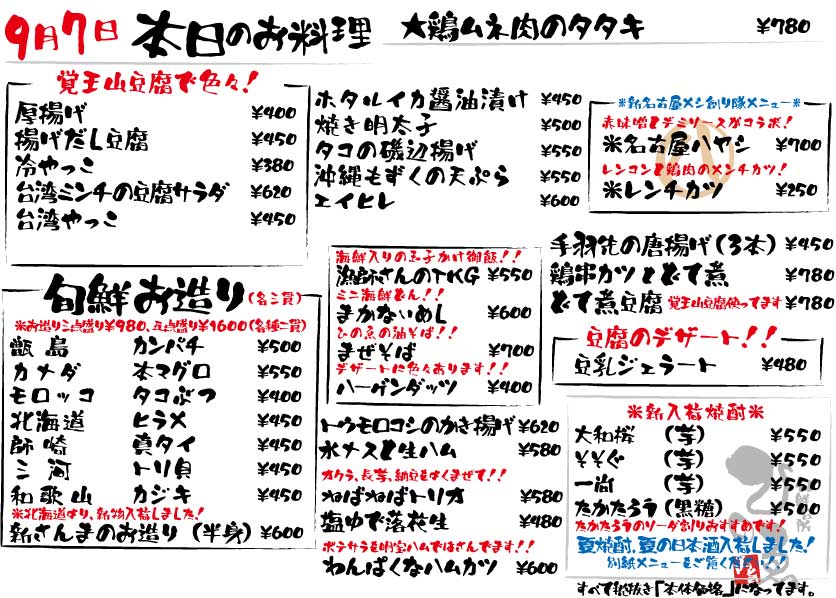 9月7日 本日のお料理
★鶏ムネ肉のタタキ ¥780
覚王山豆腐で色々！
厚揚げ ¥400
揚げだし豆腐 ¥450
冷やっこ ¥380
台湾ミンチの豆腐サラダ ¥620
台湾やっこ ¥450
旬鮮お造り(各二貫)
※お造り三点盛り¥980、五点盛り¥1600(各種二貫)
甑島 カンパチ ¥500
カナダ 本マグロ ¥550
モロッコ タコぶつ ¥400
北海道 ヒラメ ¥450
師崎 真タイ ¥450
三河 トリ貝 ¥450
和歌山 カジキ ¥450
※北海道より、新物入荷しました！
新さんまのお造り (半身) ¥600
ホタルイカ醤油漬け ¥450
焼き明太子 ¥500
タコの磯辺揚げ ¥550
沖縄もずくの天ぷら ¥550
エイヒレ ¥600
海鮮入りの玉子かけ御飯！！
漁師さんのTKG ¥550
ミニ海鮮どん！！
まかないめし ¥600
ひの魚の油そば！！
まぜそば ¥700
デザートに色々あります！！
ハーゲンダッツ ¥400
トウモロコシのかき揚げ ¥620
水ナスと生ハム ¥580
オクラ、長芋、納豆をよくまぜて！！
ねばねばトリオ ¥580
塩ゆで落花生 ¥480
ポテサラを明宝ハムではさんでます！！
わんぱくなハムカツ ¥600
※新名古屋メシ創り隊メニュー※
赤味噌とデミソースがコラボ！
※名古屋ハヤシ ¥700
レンコンと鶏肉のメンチカツ！
※レンチカツ ¥250
手羽先の唐揚げ (3本) ¥450
鶏串カツとどて煮 ¥780
どて煮豆腐 覚王山豆腐使ってます ¥780
豆腐のデザート！！
豆乳ジェラート ¥480
※新入荷焼酎※
大和桜 (芋) ¥550
そそぐ (芋) ¥550
一尚 (芋) ¥550
たかたろう (黒糖) ¥500
たかたろうのソーダ割りおすすめです！
夏焼酎、夏の日本酒入荷しました！
別紙メニューをご覧ください！！
すべて税抜き「本体価格」になってます。